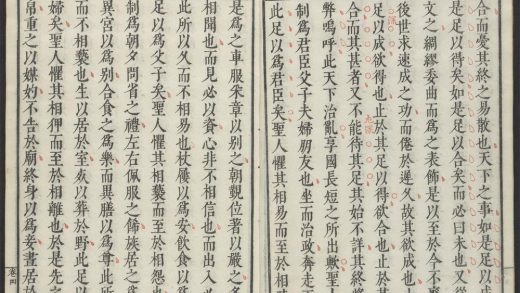 合而憂其終之易散也天下之事如是足以成
是足以得矣如是足以合矣而必曰未也又從
文之綢繆委曲而為之表飾是以至於今不廢
後世求速成之功而倦於遲久故其欲成也止
足以成欲得也止於其足以得欲合也止於其
合而其甚者又不能待其足其始不詳其終將
弊嗚呼此天下治亂享國長短之所出歟聖
制為君臣父子夫婦朋友也坐而治政奔走而
此足以為君臣矣聖人懼其相易而至於相
是為之車服采章以别之朝覲位著以嚴之名
相聞也而見必以贄心非不相信也而出入必
此所以久而不相易也杖屨以為安飲食以為
足以為父子矣聖人懼其相褻而至於相怨也
制為朝夕問省之禮左右佩服之飾族居之為
異宮以為别合食之為樂而異膳以為尊此所
而不相褻也生以居於室死以葬於野此足以
婦矣聖人懼其相狎而至於相離也於是先之
帛重之以媒妁不告於廟終身以為妾晝居於
卷四